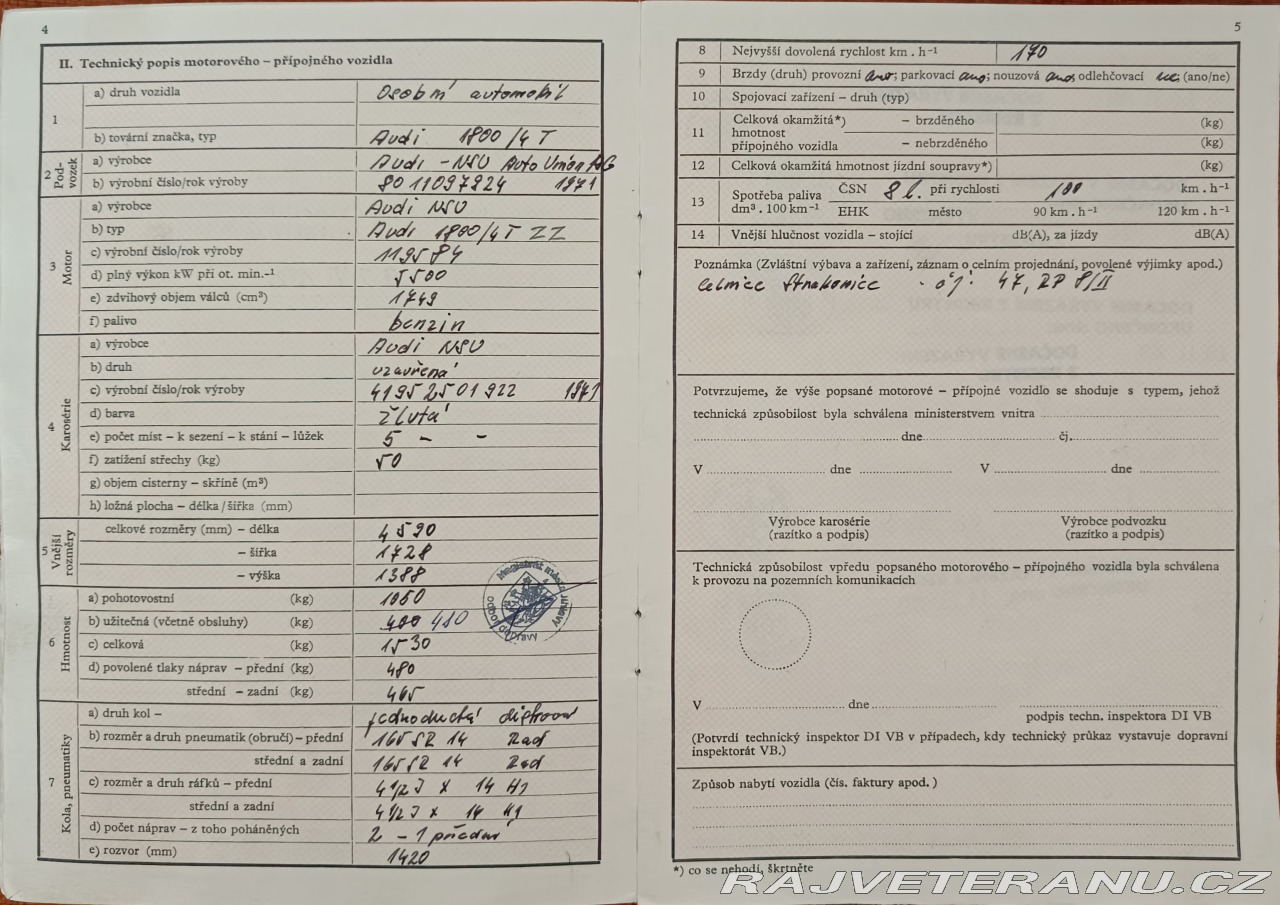 4
II. Technický popis motorového – přípojného vozidla
1
a) druh vozidla Osobní automobil
b) tovární značka, typ Audi 1800/4 T
2 Podvozek
a) výrobce Audi – NSU Auto Union AG
b) výrobní číslo/rok výroby 8011097924 1971
3 Motor
a) výrobce Audi NSU
b) typ Audi 1800/4T ZZ
c) výrobní číslo/rok výroby 119584
d) plný výkon kW při ot. min.-1 5500
e) zdvihový objem válců (cm³) 1749
f) palivo benzin
4 Karosérie
a) výrobce Audi NSU
b) druh uzavřená
c) výrobní číslo/rok výroby 4195 2501922 1971
d) barva žlutá
e) počet míst – k sezení – k stání – lůžek 5 – –
f) zatížení střechy (kg) 50
g) objem cisterny – skříně (m³)
h) ložná plocha – délka/šířka (mm)
5 Vnější rozměry
celkové rozměry (mm) – délka 4590
– šířka 1728
– výška 1388
6 Hmotnost
a) pohotovostní (kg) 1050
b) užitečná (včetně obsluhy) (kg) 480
c) celková (kg) 1530
d) povolené tlaky náprav – přední (kg) 480
střední – zadní (kg) 465
7 Kola, pneumatiky
a) druh kol – jednoduchá
b) rozměr a druh pneumatik (obručí) – přední 165 SR 14 Rad
střední a zadní 165 SR 14 Rad
c) rozměr a druh ráfků – přední 4 1/2 J x 14 H1
střední a zadní 4 1/2 J x 14 H1
d) počet náprav – z toho poháněných 2 – 1 přední
e) rozvor (mm) 1420
5
8 Nejvyšší dovolená rychlost km . h-1 170
9 Brzdy (druh) provozní ano; parkovací ano; nouzová ano; odlehčovací ne; (ano/ne)
10 Spojovací zařízení – druh (typ)
11 Celková okamžitá*) – brzděného (kg)
hmotnost
přípojného vozidla – nebrzděného (kg)
12 Celková okamžitá hmotnost jízdní soupravy*) (kg)
13 Spotřeba paliva ČSN 8 l. při rychlosti 100 km . h-1
dm³ . 100 km-1 EHK město 90 km . h-1 120 km . h-1
14 Vnější hlučnost vozidla – stojící dB(A), za jízdy dB(A)
Poznámka (Zvláštní výbava a zařízení, záznam o celním projednání, povolené výjimky apod.)
Celnice Strakonice čj: 47, ZP 8/II
Potvrzujeme, že výše popsané motorové – přípojné vozidlo se shoduje s typem, jehož
technická způsobilost byla schválena ministerstvem vnitra
dne čj.
V dne V dne
Výrobce karosérie Výrobce podvozku
(razítko a podpis) (razítko a podpis)
Technická způsobilost vpředu popsaného motorového – přípojného vozidla byla schválena
k provozu na pozemních komunikacích
V dne
podpis techn. inspektora DI VB
(Potvrdí technický inspektor DI VB v případech, kdy technický průkaz vystavuje dopravní
inspektorát VB.)
Způsob nabytí vozidla (čís. faktury apod.)
*) co se nehodí, škrtněte
RAJVETERANU.CZ